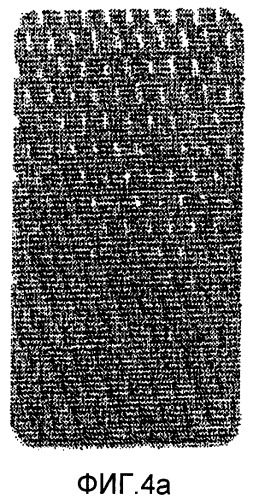 ФИГ.4а